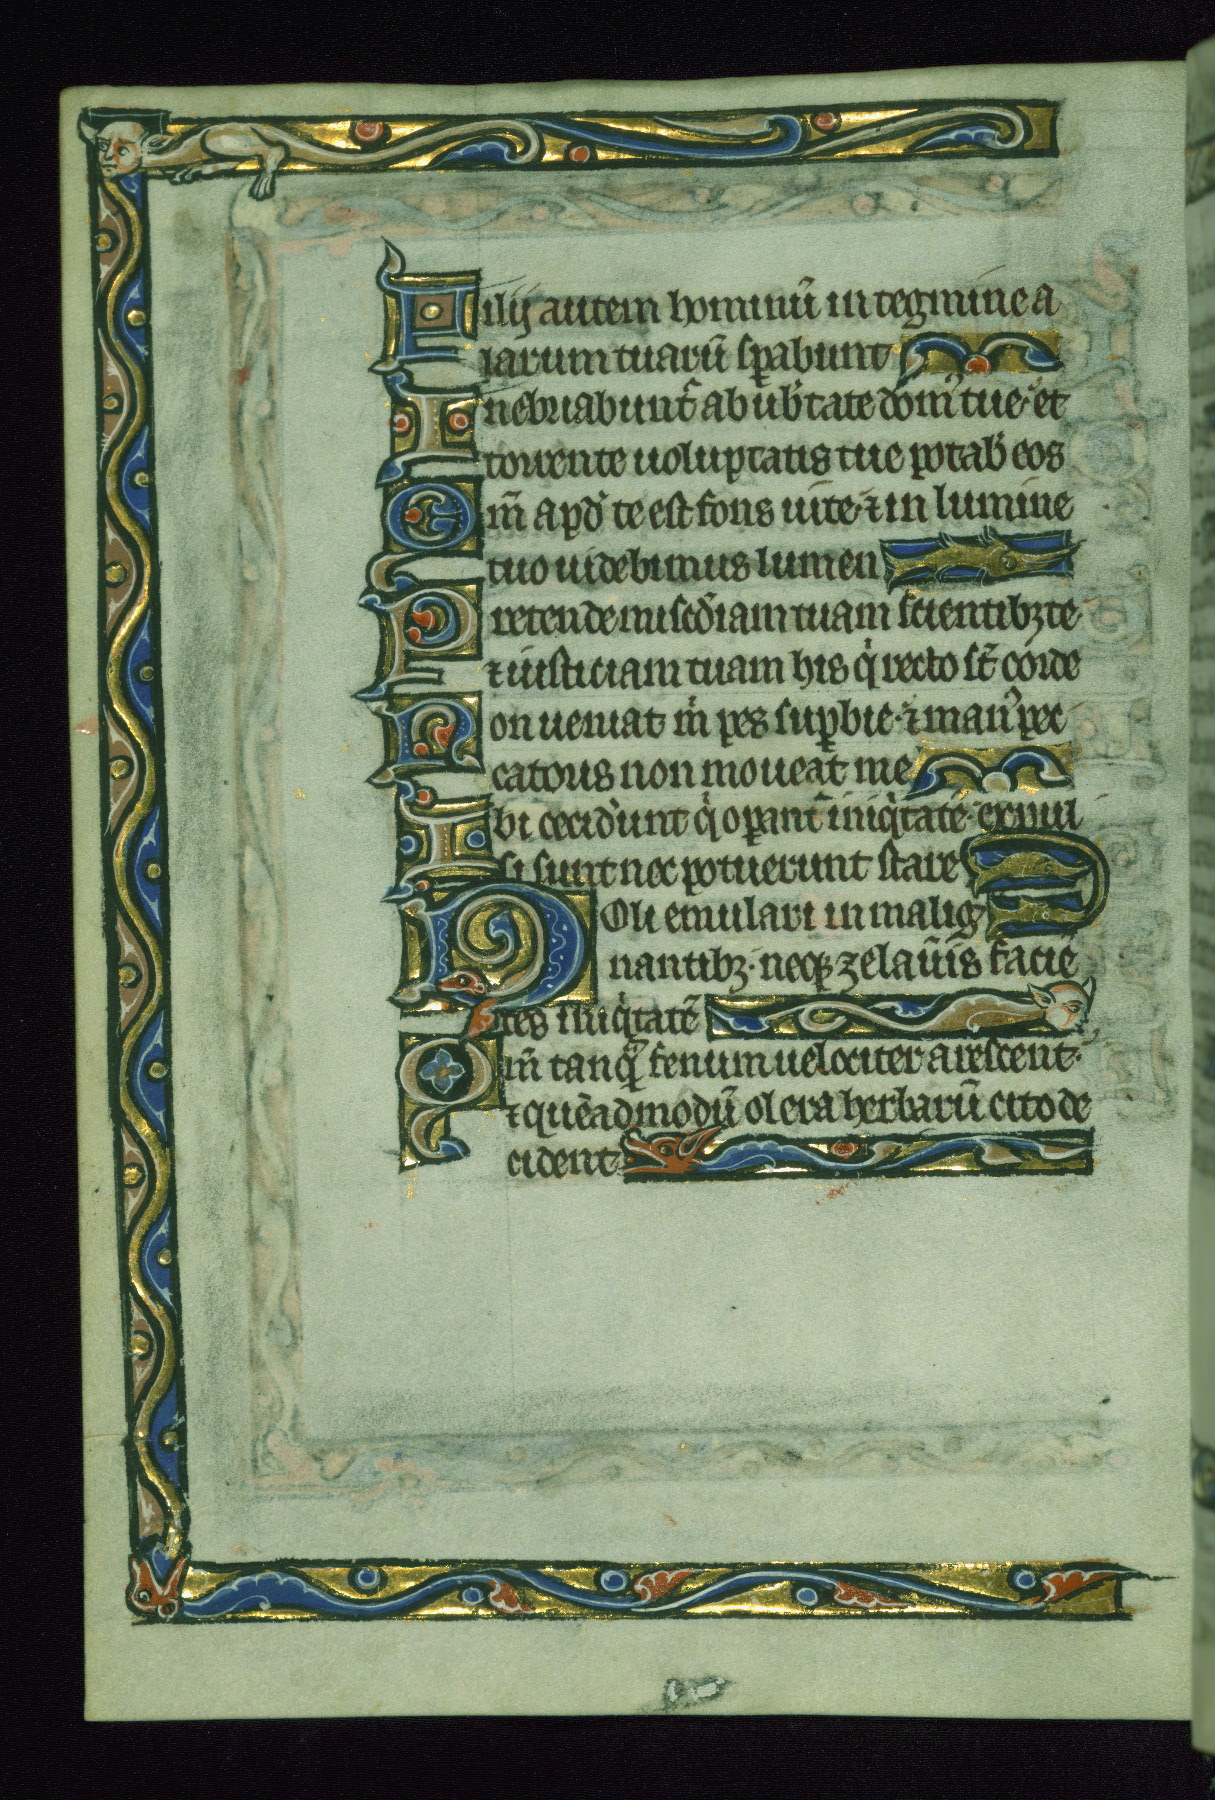 Filij autem hominū in tegmine a
larum tuarū sꝑabunt
Inebriabunt᷑ ab ub̓tate dom᷒ tue· et
torrente uoluptatis tue potab̓ eos
Qm̄ apd̓ te est fons uite· ⁊ in lumine
tuo uidebimus lumen
Pretende misc̓diam tuam scientibꝫ te
⁊ iusticiam tuam his q̓ recto st̄ corde
Non ueniat m̓ pes suꝑbie· ⁊ man᷒ pec
catoris non moueat me
Ibi cecid̓unt q̓ oꝑant᷑ iniq̓tatē· expul
si sunt nec potuerunt stare
Noli emulari in malig
nantibꝫ· neqꝫ zelau̓is faciē
tes iniq̓tatē
Qm̄ tanq̓ fenum uelociter arescent·
⁊ quēadmodū olera herbarū cito de
cident